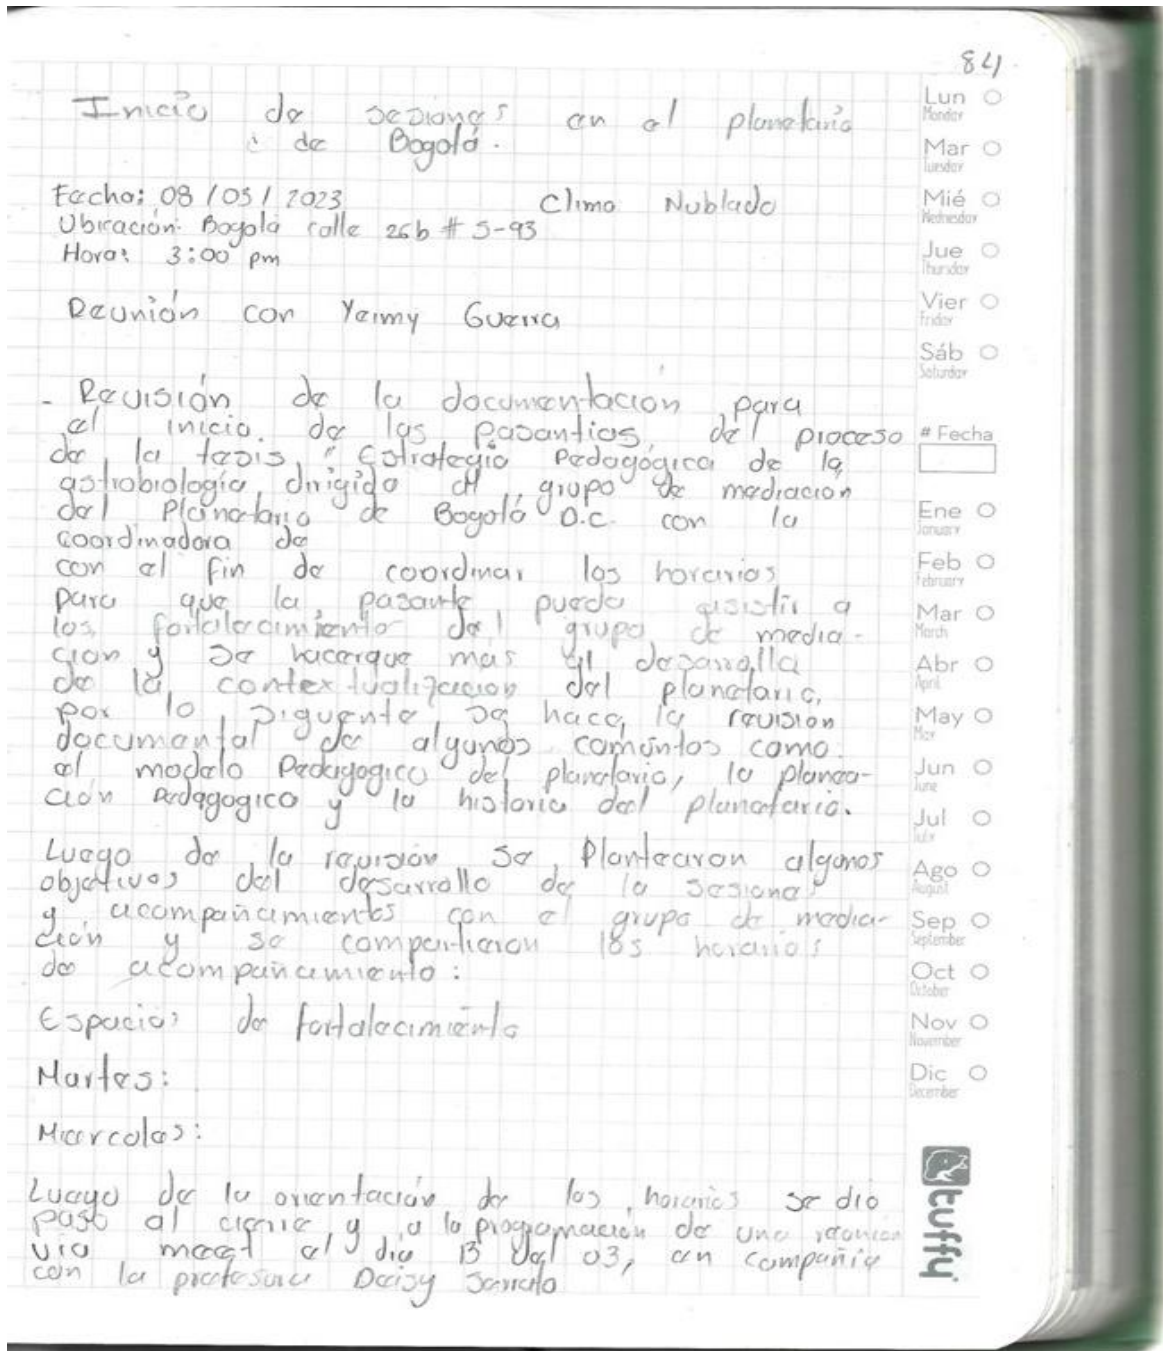 84
Inicio de sesiones en el planetario
de Bogotá.
Fecha: 08/03/2023 Clima Nublado
Ubicación: Bogotá calle 26b # 5-93
Hora: 3:00 pm
Reunión con Yeimy Guerra
- Revisión de la documentación para
el inicio de las pasantias, del proceso
de la tesis "Estrategia Pedagógica de la
astrobiología dirigida al grupo de mediación
del Planetario de Bogotá D.C. con la
coordinadora de
con el fin de coordinar los horarios
para que la pasante pueda asistir a
los fortalecimiento del grupo de media-
ción y se hacerque mas al desarrollo
de la contextualización del planetario,
por lo siguente se hace la revisión
documental de algunos comentos como:
el modelo Pedagogico del planetario, la planea-
ción Pedagogico y la historia del planetario.
Luego de la revisión se Plantearon algunos
objetivos del desarrollo de la sesiones
y acompañamientos con el grupo de media-
ción y se compartieron los horarios
de acompañamiento:
Espacios de fortalecimiento
Martes:
Miercoles:
Luego de la orientación de los horarios se dio
paso al cierre y a la programación de una reunion
via meet el dia 13 del 03, en compañia
con la profesora Deisy
Lun
Monday
Mar
Tuesday
Mié
Wednesday
Jue
Thursday
Vier
Friday
Sáb
Saturday
# Fecha
Ene
January
Feb
February
Mar
March
Abr
April
May
May
Jun
June
Jul
July
Ago
August
Sep
September
Oct
October
Nov
November
Dic
December
tuffy